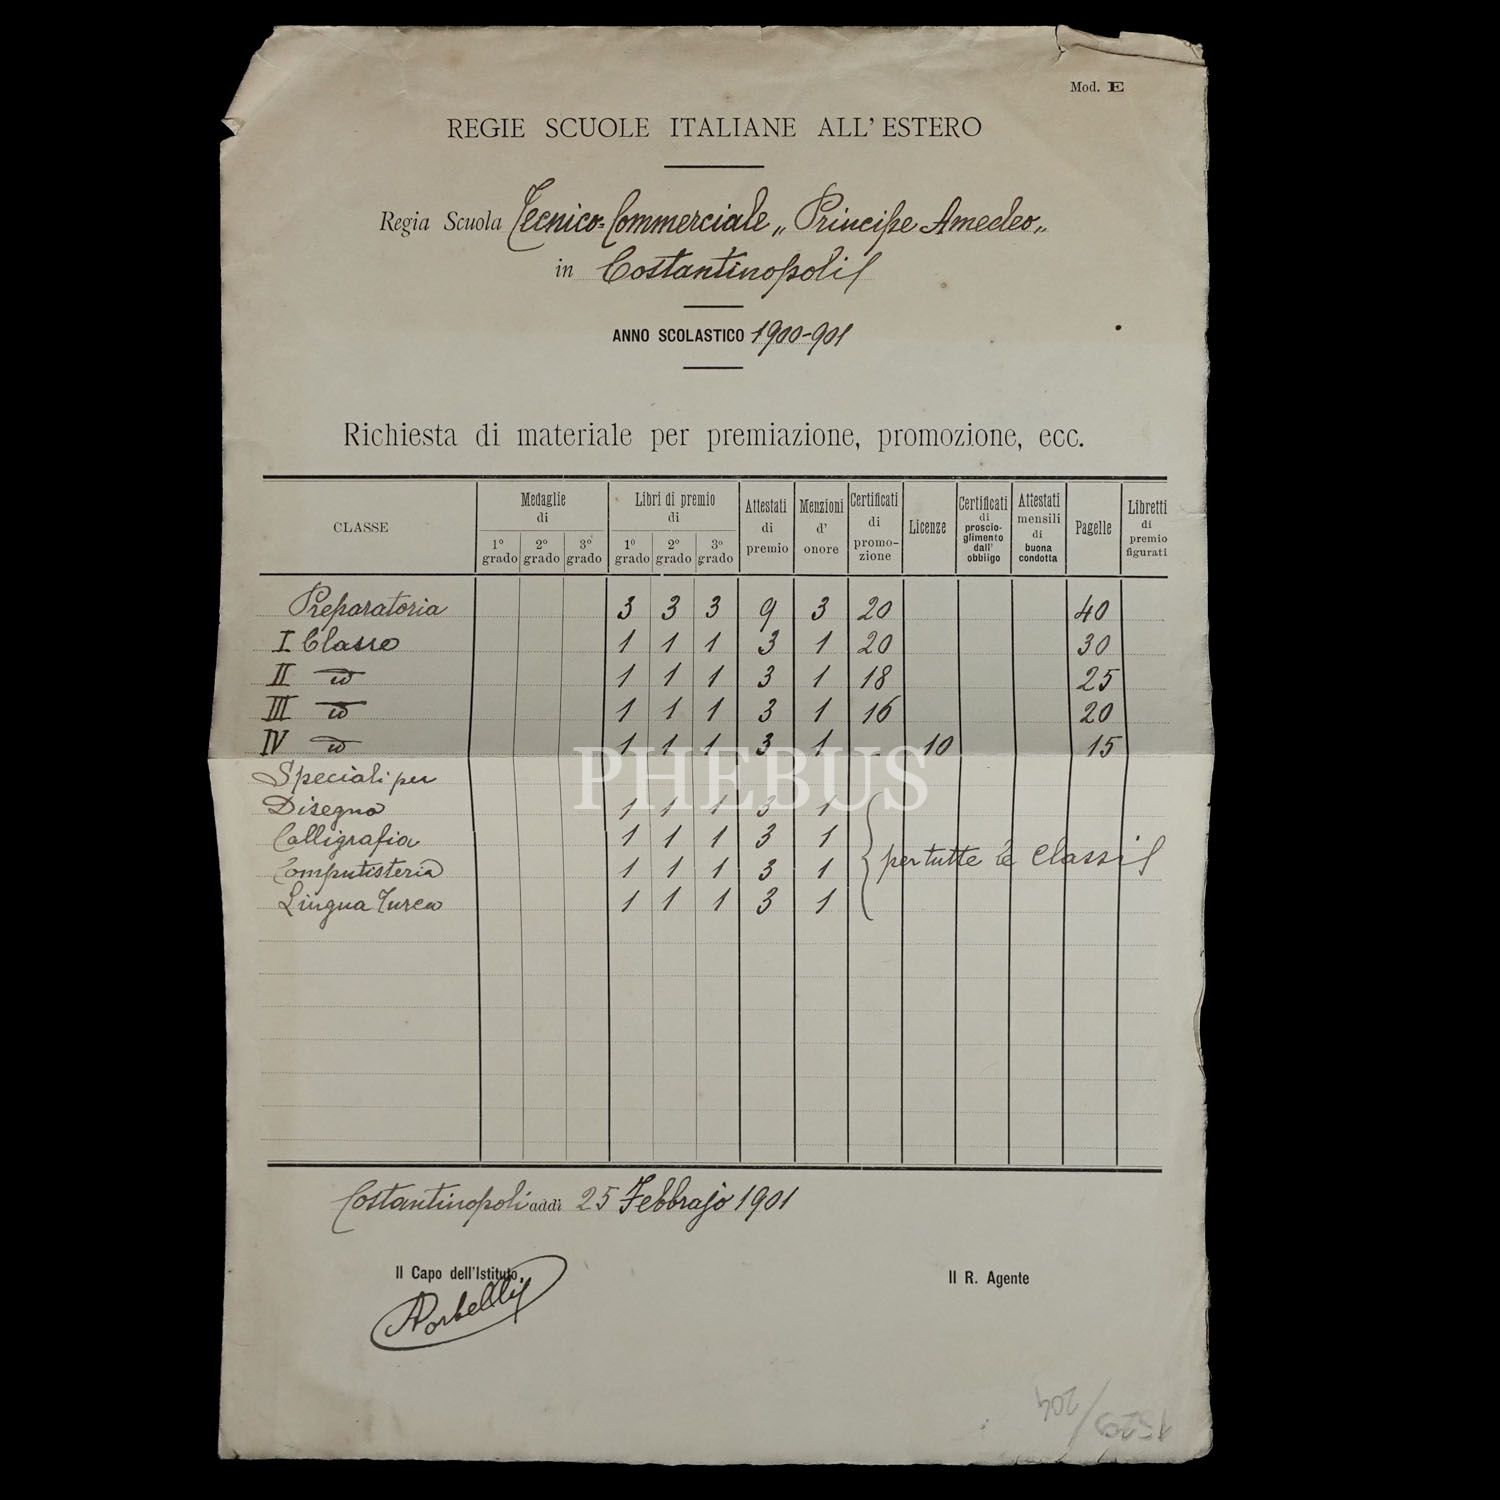 Mod. E
REGIE SCUOLE ITALIANE ALL'ESTERO
Regia Scuola Tecnico=Commerciale „Principe Amedeo„
in Costantinopoli
ANNO SCOLASTICO 1900-901
Richiesta di materiale per premiazione, promozione, ecc.
CLASSE
Medaglie di
1° grado 2° grado 3° grado
Libri di premio di
1° grado 2° grado 3° grado
Attestati di premio
Menzioni d'onore
Certificati di promozione
Licenze
Certificati di proscioglimento dall'obbligo
Attestati mensili di buona condotta
Pagelle
Libretti di premio figurati
Preparatoria 3 3 3 9 3 20 40
I Classe 1 1 1 3 1 20 30
II id 1 1 1 3 1 18 25
III id 1 1 1 3 1 16 20
IV id 1 1 1 3 1 10 15
Speciali per
Disegno 1 1 1 3 1
Calligrafia 1 1 1 3 1
Computisteria 1 1 1 3 1
Lingua Turca 1 1 1 3 1
per tutte le classi
PHEBUS
Costantinopoli addì 25 Febbrajo 1901
Il Capo dell'Istituto,
Il R. Agente